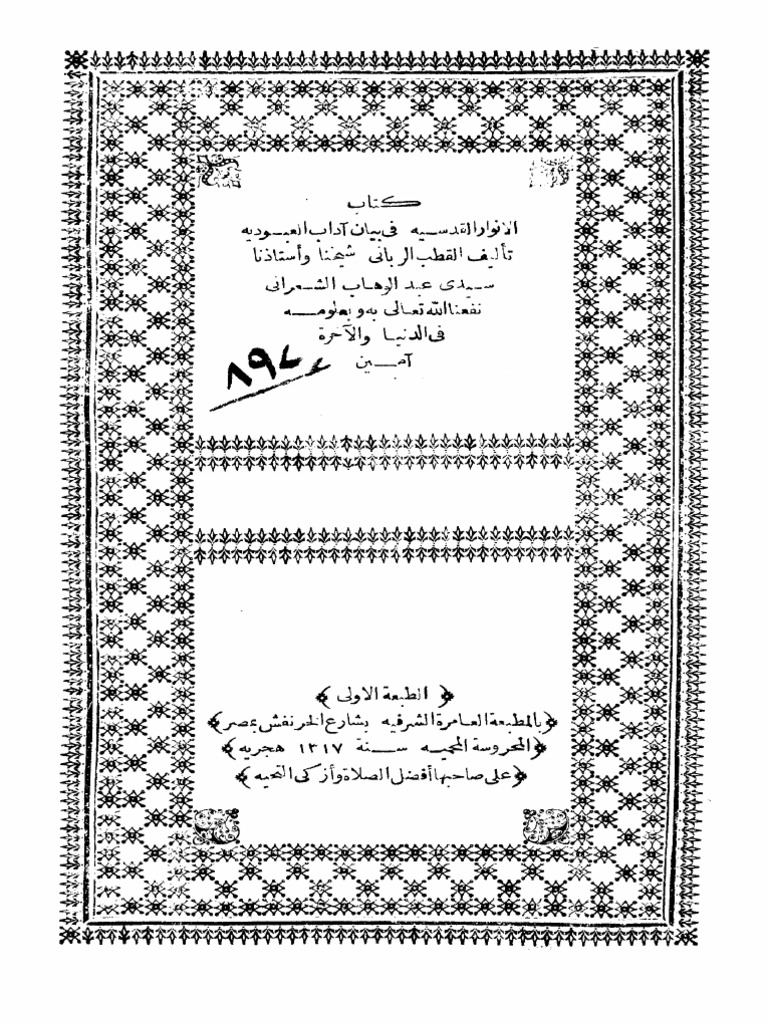 كتاب
الانوار القدسيه فى بيان آداب العبوديه
تأليف القطب الربانى شيخنا وأستاذنا
سيدى عبد الوهاب الشعرانى
نفعنا الله تعالى به وبعلومه
فى الدنيا والآخرة
آمين
﴿ الطبعة الاولى ﴾
﴿بالمطبعة العامرة الشرفيه بشارع الخرنفش بمصر﴾
﴿المحروسة المحميه سنة ١٣١٧ هجريه﴾
﴿على صاحبها أفضل الصلاة وأزكى التحيه﴾